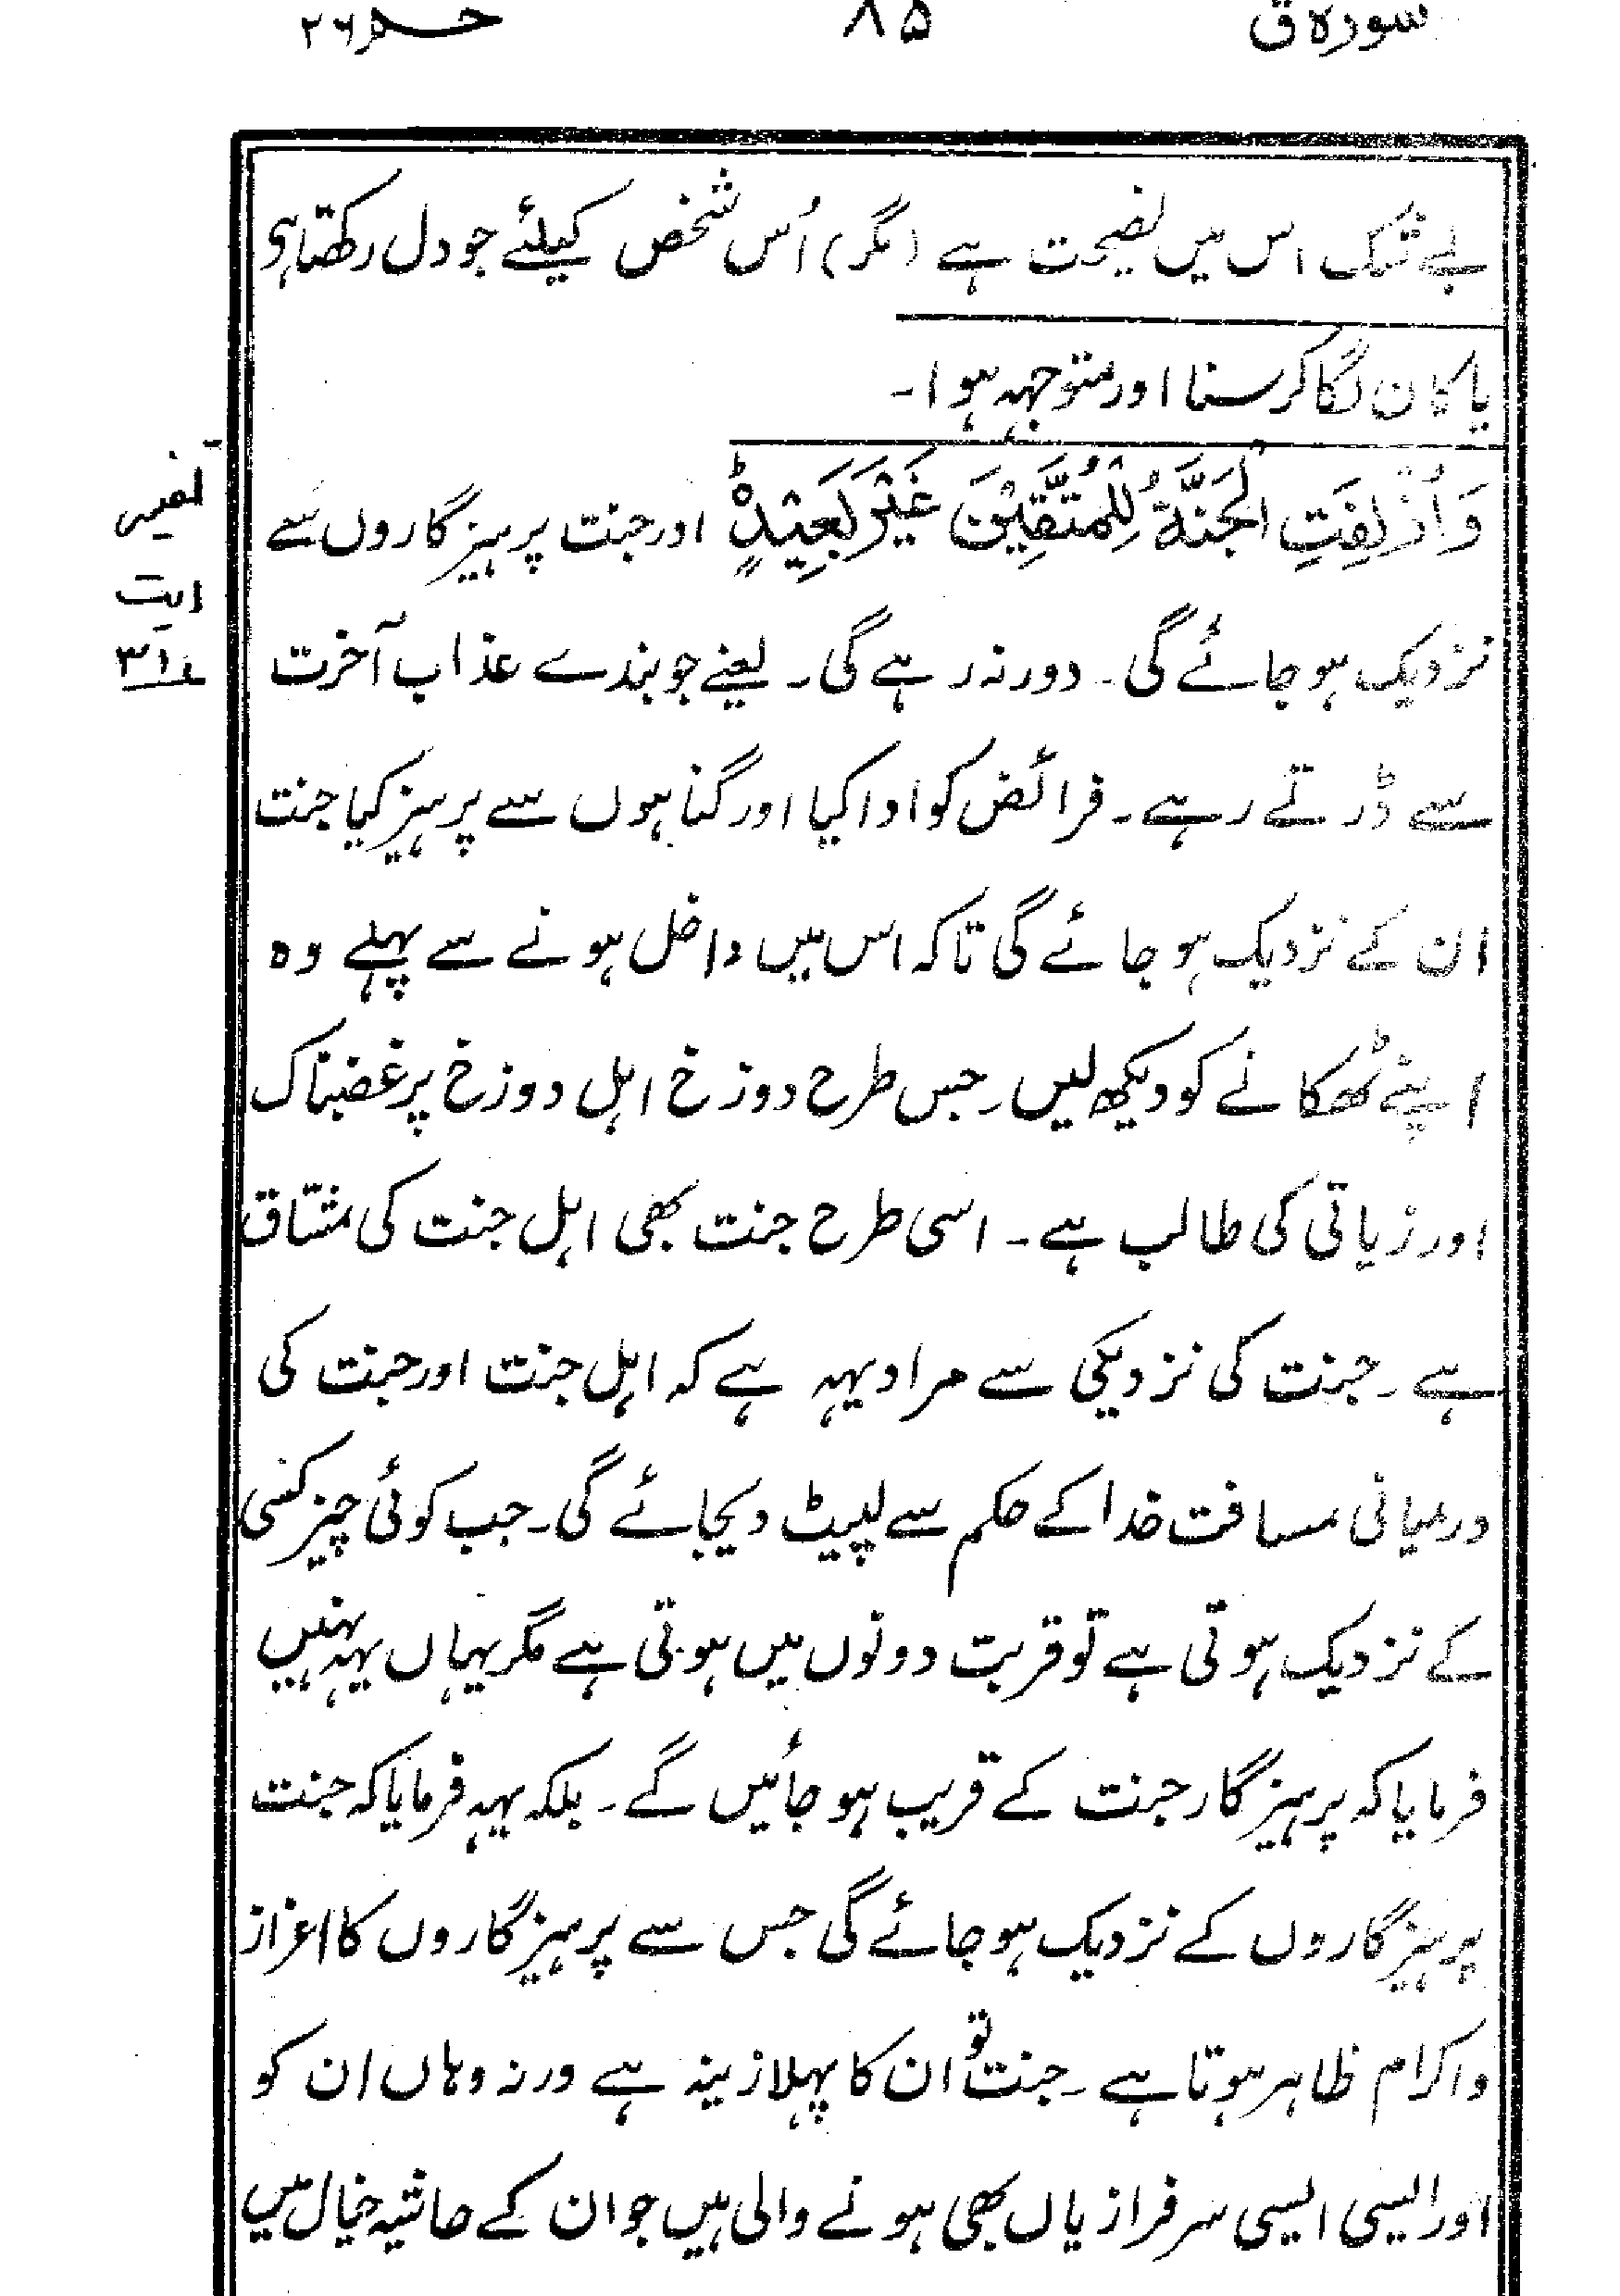 سورہ ق ۸۵ حٰم ۲۶
بے شک اس میں نصیحت ہے (مگر) اُس شخص کیلئے جو دل رکھتا ہی
یا کان لگا کر سنا اور متوجہہ ہوا۔
وَ اُزْلِفَتِ الْجَنَّةُ لِلْمُتَّقِیْنَ غَیْرَ بَعِیْدٍؕ اور جنت پرہیزگاروں سے
تفسیر
ایت
۳۱
نزدیک ہو جائے گی۔ دور نہ رہے گی۔ یعنے جو بندے عذاب آخرت
سے ڈرتے رہے۔ فرائض کو ادا کیا اور گناہوں سے پرہیز کیا جنت
ان کے نزدیک ہو جائے گی تاکہ اس میں داخل ہونے سے پہلے وہ
اپنے ٹھکانے کو دیکھ لیں۔ جس طرح دوزخ اہل دوزخ پر غضبناک
اور زیاتی کی طالب ہے۔ اسی طرح جنت بھی اہل جنت کی مشتاق
ہے۔ جنت کی نزدیکی سے مراد یہہ ہے کہ اہل جنت اور جنت کی
درمیانی مسافت خدا کے حکم سے لپیٹ دیجائے گی۔ جب کوئی چیز کسی
کے نزدیک ہوتی ہے تو قربت دونوں میں ہوتی ہے مگر یہاں یہہ نہیں
فرمایا کہ پرہیزگار جنت کے قریب ہو جائیں گے۔ بلکہ یہہ فرمایا کہ جنت
پرہیزگاروں کے نزدیک ہو جائے گی جس سے پرہیزگاروں کا اعزاز
و اکرام ظاہر ہوتا ہے۔ جنت تو ان کا پہلا زینہ ہے ورنہ وہاں ان کو
اور ایسی ایسی سرفرازیاں بھی ہونے والی ہیں جو ان کے حاشیہ خیال میں